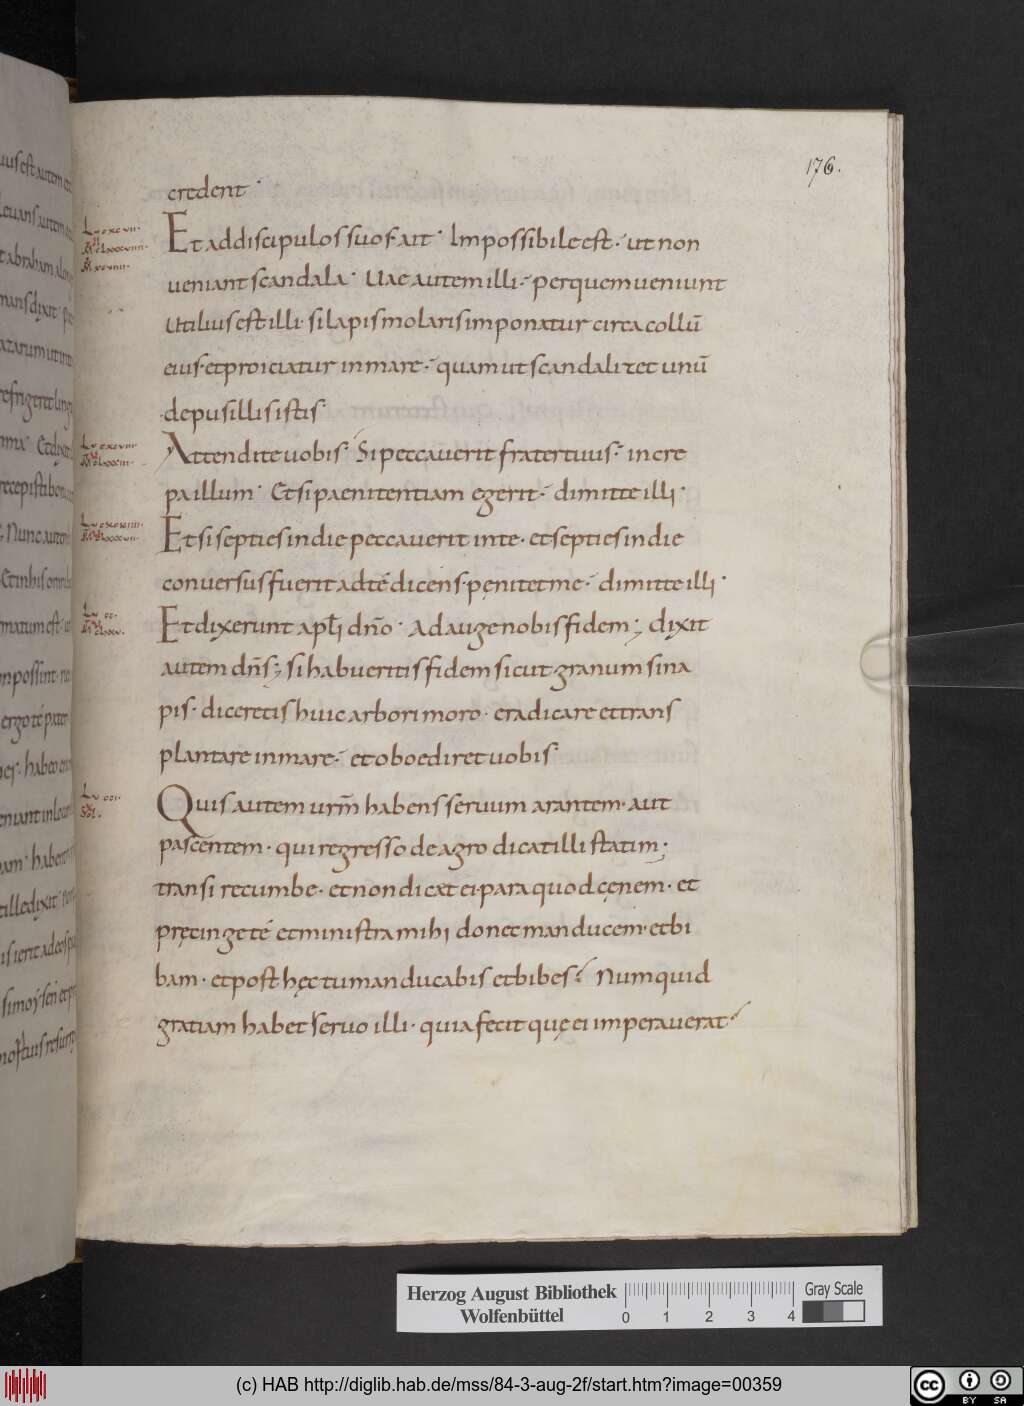 176.
credent
Et ad discipulos suos ait. Impossibile est. ut non
veniant scandala. Vae autem illi. per quem veniunt
Utilius est illi. si lapis molaris imponatur circa collū
eius. et proiciatur in mare. quam ut scandalizet unū
de pusillis istis.
Attendite vobis. Si peccaverit frater tuus. incre
pa illum. Et si paenitentiam egerit. dimitte illi.
Et si septies in die peccaverit in te. et septies in die
conversus fuerit ad té dicens. pęnitet me. dimitte illi.
Et dixerunt apl̄i dn̄o. Adauge nobis fidem; dixit
autem dn̄s; si habueritis fidem sicut granum sina
pis. diceretis huic arbori moro. eradicare et trans
plantare in mare. et oboediret vobis.
Quis autem urm̄ habens servum arantem. aut
pascentem. qui regresso de agro dicat illi statim;
transi recumbe. et non dicat ei. para quod cęnem. et
pręcinge té et ministra mihi donec manducem. et bi
bam. et post hęc tu manducabis et bibes? Numquid
gratiam habet servo illi. quia fecit quę ei imperaverat?
Herzog August Bibliothek
Wolfenbüttel
0 1 2 3 4
Gray Scale
(c) HAB http://diglib.hab.de/mss/84-3-aug-2f/start.htm?image=00359
cc BY SA